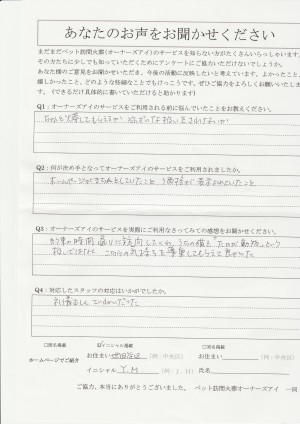 あなたのお声をお聞かせください
まだまだペット訪問火葬(オーナーズアイ)のサービスを知らない方がたくさんいらっしゃいます。
その方たちに少しでも知っていただくためにアンケートにご協力いただけないでしょうか。
あなた様のご意見をお聞かせいただき、今後の活動に反映したいと考えています。よかったこと、
嬉しかったこと、どのような些細なことでもけっこうです。ぜひご協力をよろしくお願いいたしま
す。(できるだけ具体的に書いていただけると助かります)
Q1:オーナーズアイのサービスをご利用される前に悩んでいたことをお教えください。
ちゃんと火葬してもらえるか
Q2:何が決め手となってオーナーズアイのサービスをご利用されましたか。
ホームページがきちんとしていたこと
Q3:オーナーズアイのサービスを実際にご利用なさってみての感想をお聞かせください。
約束の時間通りに
こちらの気持ちを尊重してもらえて良かった
Q4:対応したスタッフの対応はいかがでしたか。
礼儀正しく
□実名掲載
☑イニシャル掲載
□匿名掲載
ホームページでご紹介
お住まい 世田谷区 (例:中央区)
お住まい (例:中央区)
イニシャル Y.M (例:J.H)
氏名
ご協力、本当にありがとうございました。 ペット訪問火葬オーナーズアイ 一同